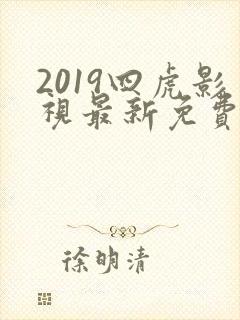 2019四虎影
視最新免費
徐明清